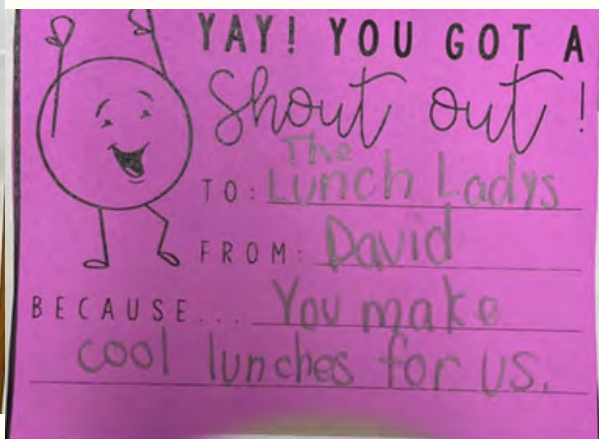 YAY! YOU GOT A
Shout out!
The
TO: Lunch Ladys
FROM: David
BECAUSE... You make
cool lunches for us.